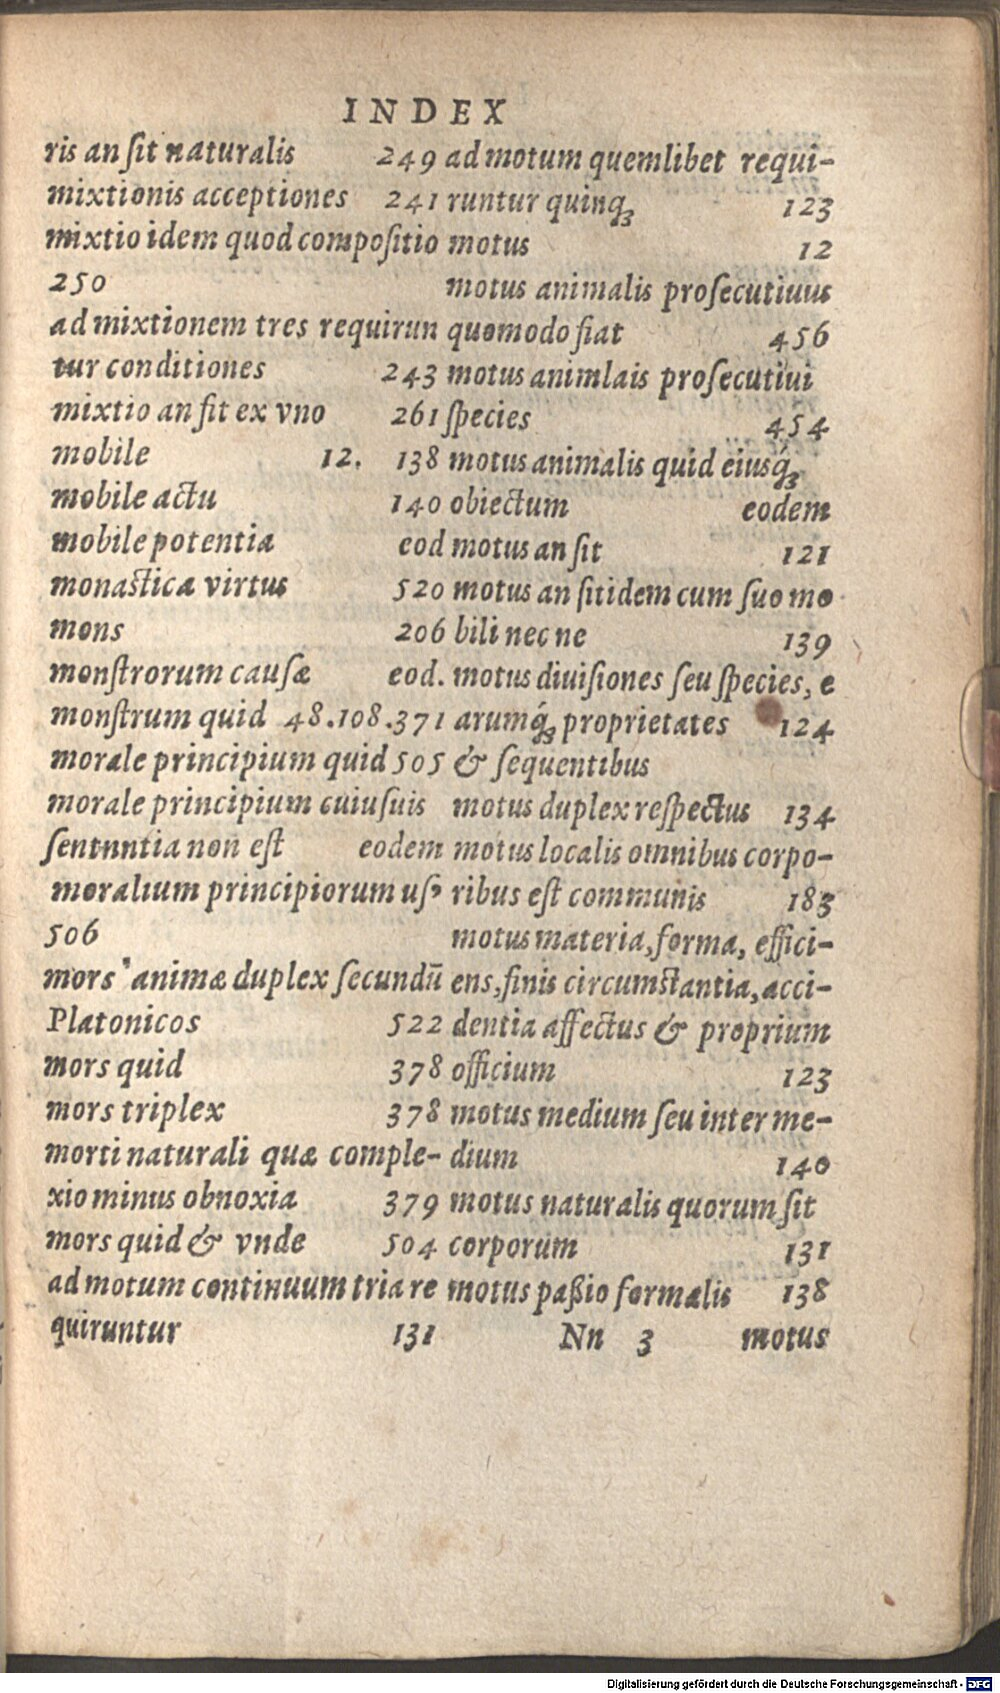 INDEX
ris an ſit naturalis 249
mixtionis acceptiones 241
mixtio idem quod compoſitio
250
ad mixtionem tres requirun
tur conditiones 243
mixtio an ſit ex vno 261
mobile 12. 138
mobile actu 140
mobile potentia eod
monaſtica virtus 520
mons 206
monſtrorum cauſæ eod.
monſtrum quid 48.108.371
morale principium quid 505
morale principium cuiuſuis
ſententia non eſt eodem
moralium principiorum uſꝰ
506
mors animæ duplex ſecundū
Platonicos 522
mors quid 378
mors triplex 378
morti naturali quæ comple-
xio minus obnoxia 379
mors quid & vnde 504
ad motum continuum tria re
quiruntur 131
ad motum quemlibet requi-
runtur quinqꝫ 123
motus 12
motus animalis proſecutiuus
quomodo fiat 456
motus animlais proſecutiui
ſpecies 454
motus animalis quid eiusq́ꝫ
obiectum eodem
motus an ſit 121
motus an ſit idem cum ſuo mo
bili nec ne 139
motus diuiſiones ſeu ſpecies, e
arumq́ꝫ proprietates 124
& ſequentibus
motus duplex reſpectus 134
motus localis omnibus corpo-
ribus eſt communis 183
motus materia, forma, effici-
ens, finis circumſtantia, acci-
dentia affectus & proprium
officium 123
motus medium ſeu inter me-
dium 140
motus naturalis quorum ſit
corporum 131
motus paßio formalis 138
Nn 3 motus
Digitalisierung gefördert durch die Deutsche Forschungsgemeinschaft - DFG